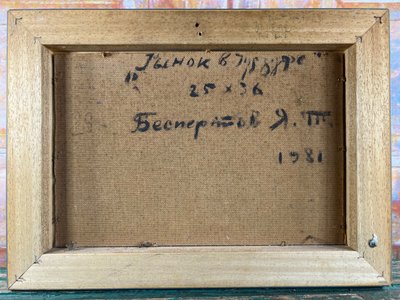 "Рынок в Гурзуфе"
25 × 36
Бесперстов Я. Т.
1981